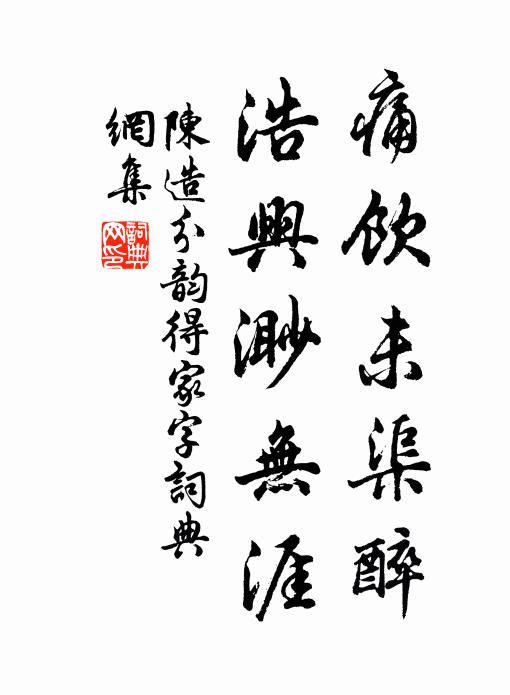 痛飲未渠醉
浩興渺無涯
陳造分韵得家字詞典
網集
詞典
网印